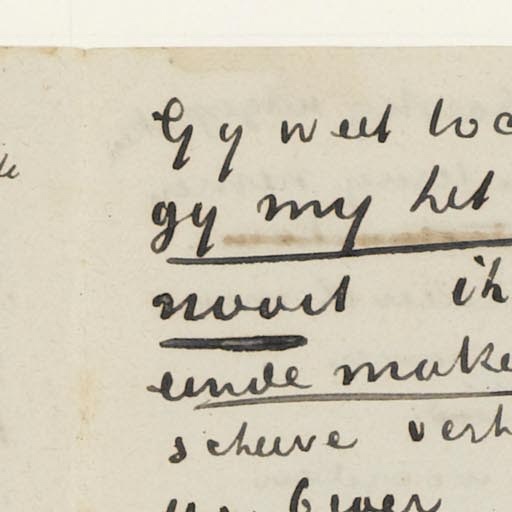 Gy weet toc
gy my het
nooit ik
einde make
scheeve verh